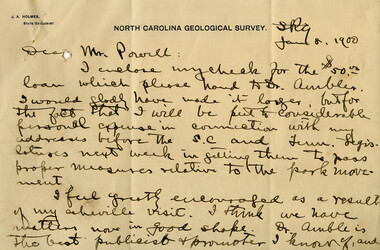 J. A. HOLMES,
State Geologist.
NORTH CAROLINA GEOLOGICAL SURVEY.
Jan 8, 1900
Dear Mr. Powell:
I enclose my check for the $50.00
loan which please hand to Dr. Ambler.
I would gladly have made it larger, but for
the fact that I will be put to considerable
personal expense in connection with my
addresses before the S.C. and Tenn. Legis-
latures next week in getting them to pass
proper measures relative to the park move-
ment
I feel greatly encouraged as a result
of my Asheville visit. I think we have
matters now in good shape. Dr. Ambler is
the best publicist & promoter I know of, and